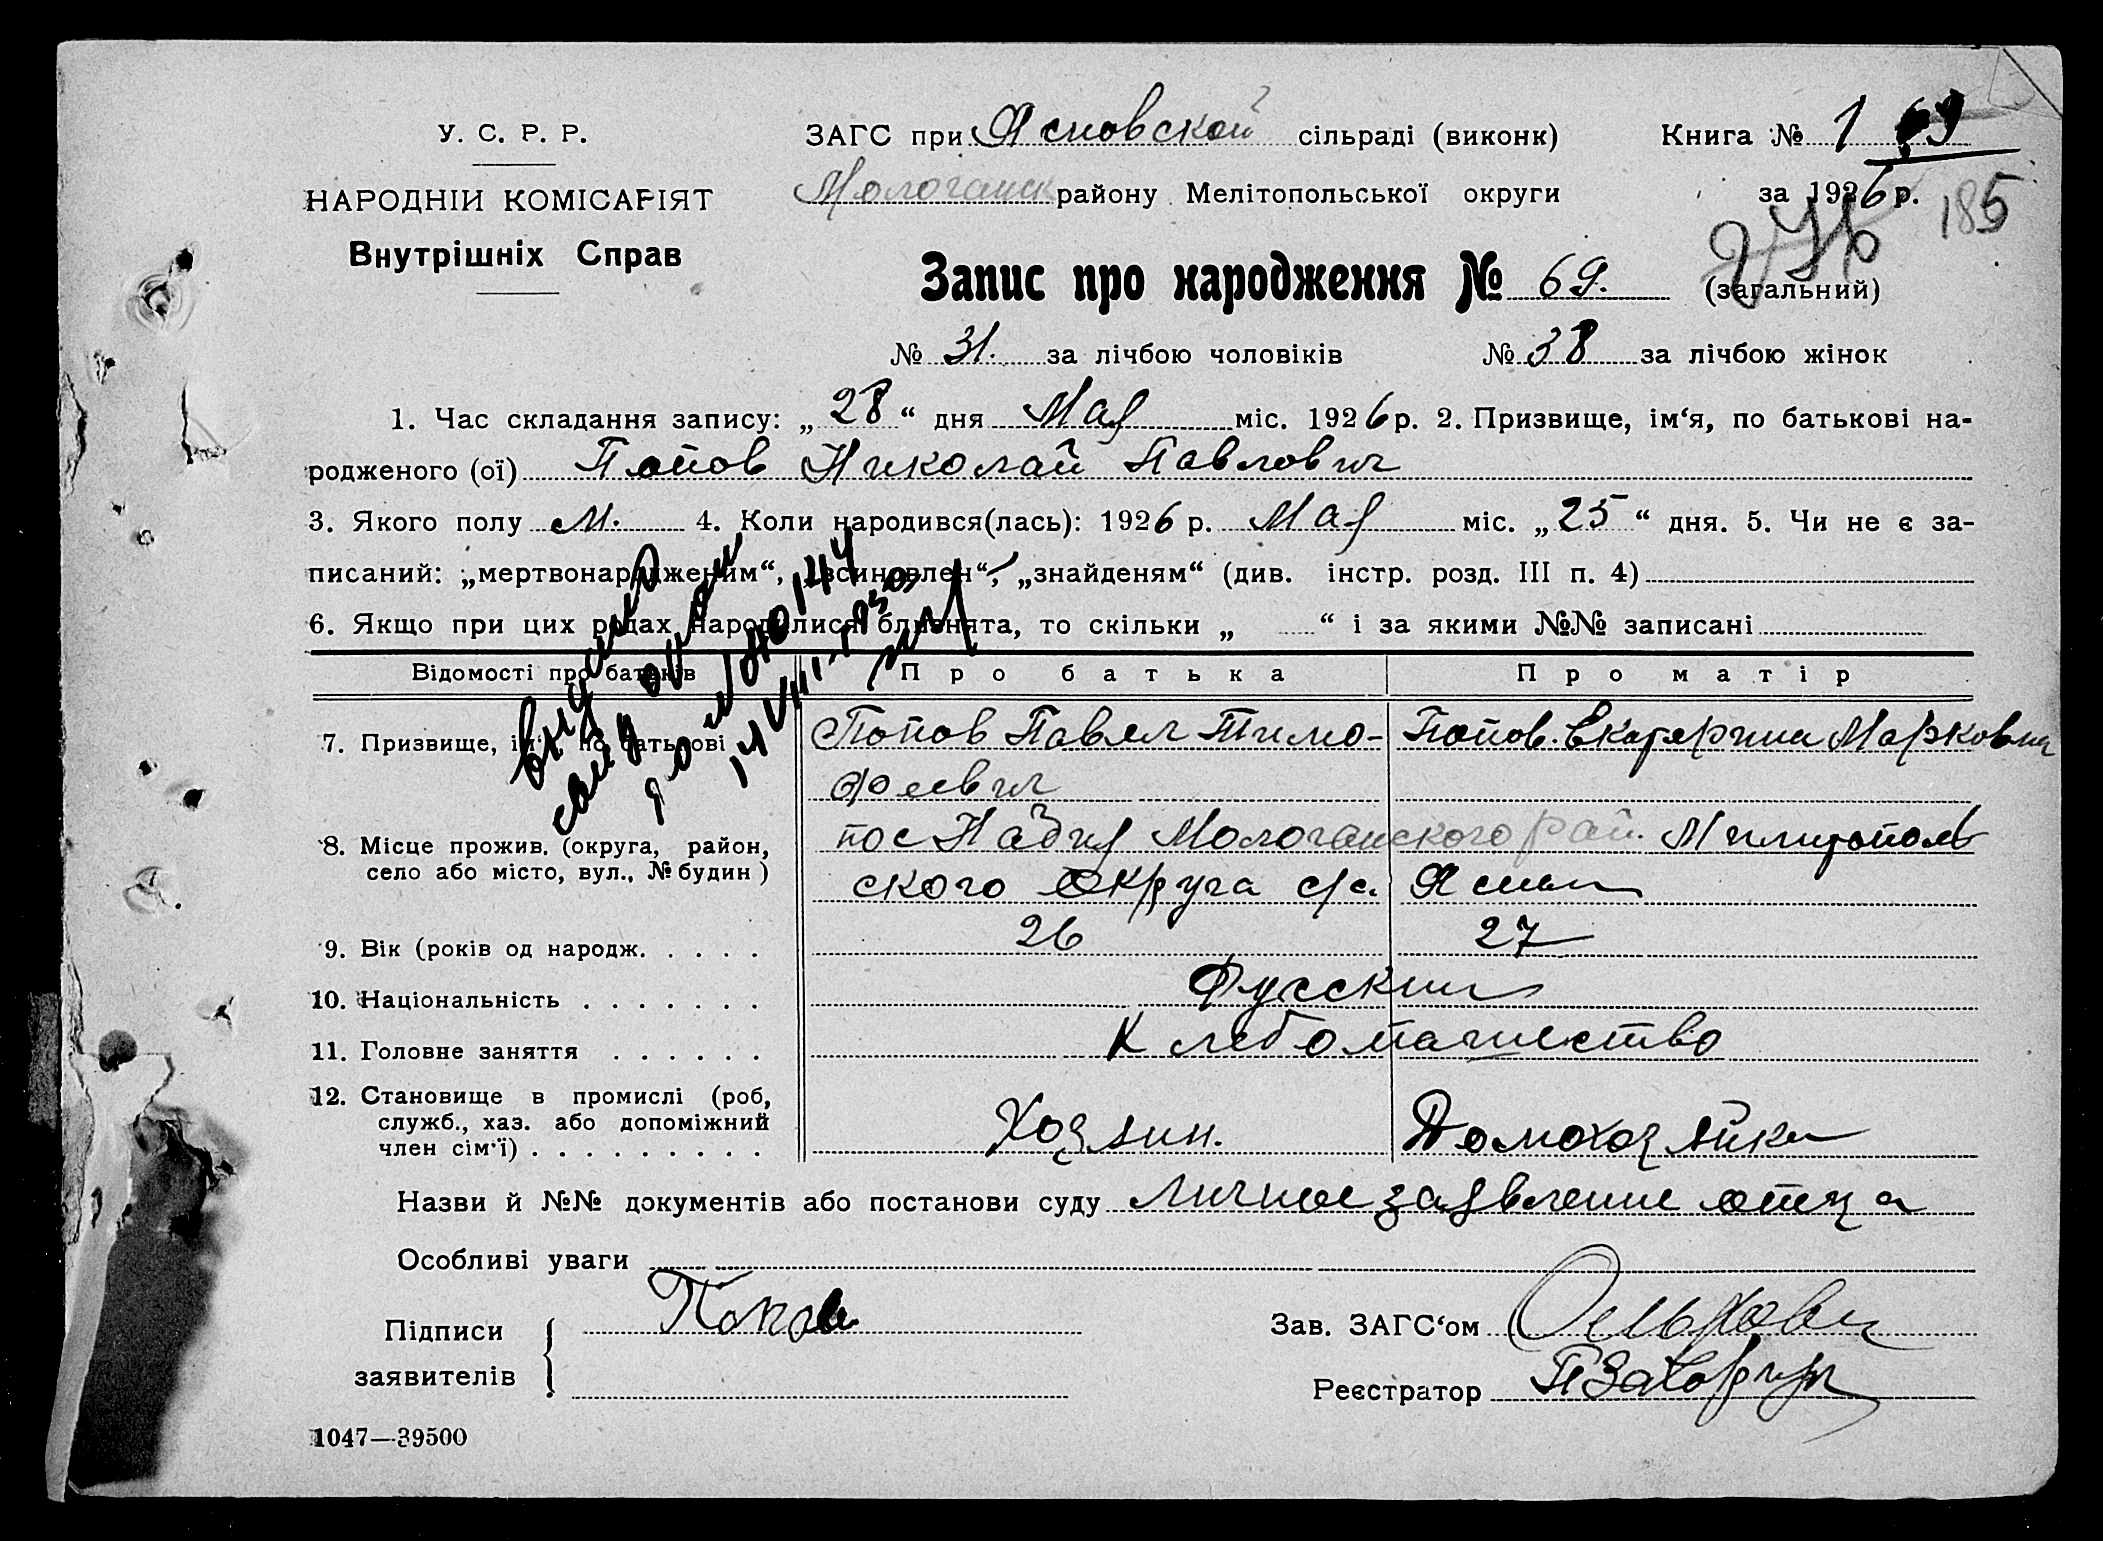 У. С. Р. Р.
НАРОДНІЙ КОМІСАРІЯТ
Внутрішніх Справ
ЗАГС при Ясновской сільраді (виконк)
Молочанск району Мелітопольської округи
Книга № 1 69
за 1926 р. 185
276
Запис про народження № 69. (загальний)
№ 31. за лічбою чоловіків № 38 за лічбою жінок
1. Час складання запису: „ 28 “ дня Мая міс. 1926 р. 2. Призвище, ім‘я, по батькові на-
родженого (ої) Попов Николай Павлович
3. Якого полу М. 4. Коли народився(лась): 1926 р. Мая міс. „ 25 “ дня. 5. Чи не є за-
писаний: „мертвонародженим“, „всиновлен“, „знайденям“ (див. інстр. розд. III п. 4)
6. Якщо при цих родах народилися близнята, то скільки „ “ і за якими №№ записані
Відомості про батьків Про батька Про матір
7. Призвище, ім‘я по батькові Попов Павел Тимо- Попов. Екатерина Марковна
фоевич
8. Місце прожив. (округа, район, пос Молочанского рай. Милитополь
село або місто, вул., № будин) ского округа с/с.
9. Вік (років од народж. 26 27
10. Національність Русские
11. Головне заняття Хлебопашество
12. Становище в промислі (роб,
служб., хаз. або допоміжний
член сім‘ї) Хозяин. Домохозяйка
Назви й №№ документів або постанови суду Личное заявление отца
Особливі уваги
Підписи
заявителів
Зав. ЗАГС‘ом
Реєстратор
1047—39500